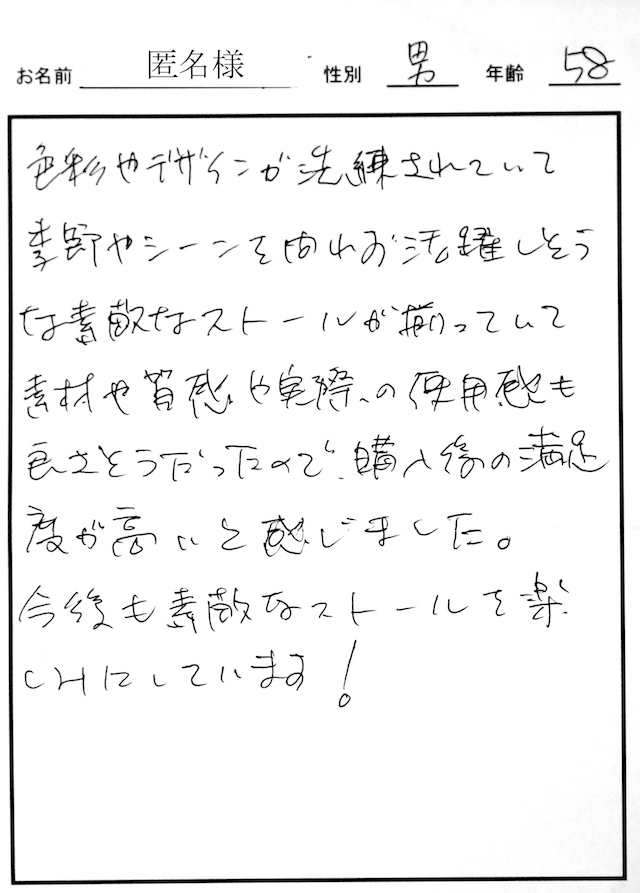 お名前 匿名様 性別 男 年齢 58
色彩やデザインが洗練されていて
季節やシーンを問わず活躍しそう
な素敵なストールが揃っていて
素材や質感や実際の使用感も
良さそうだったので、購入後の満足
度が高いと感じました。
今後も素敵なストールを楽
しみにしています!